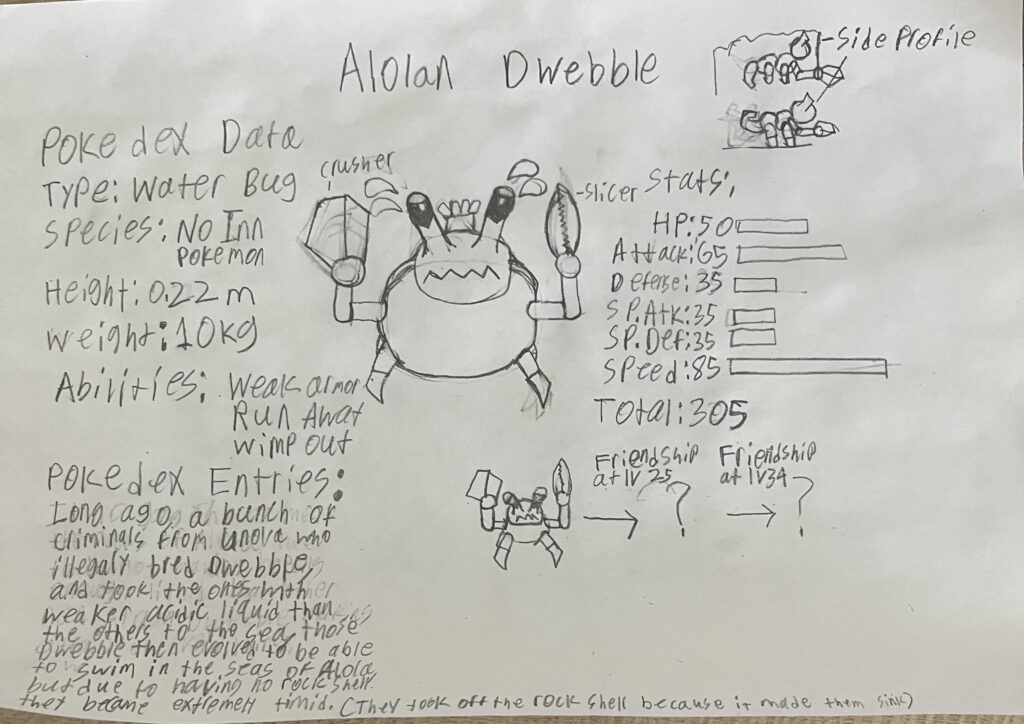 Alolan Dwebble
Side Profile
Pokedex Data
Type: Water Bug
Species: No Inn
Pokemon
Height: 0.22 m
Weight: 10kg
Abilities: Weak armor
Run Away
Wimp out
crusher
slicer
Stats:
HP:50
Attack:65
Defense:35
SP.Atk:35
SP.Def:35
Speed:85
Total:305
Friendship
at lV 25
?
Friendship
at lV34
?
Pokedex Entries:
Long ago, a bunch of
criminals from Unova who
illegaly bred Dwebble,
and took the ones with
weaker acidic liquid than
the others to the sea, those
Dwebble then evolved to be able
to swim in the seas of Alola,
but due to having no rock shell
they became extremely timid. (They took off the rock shell because it made them sink)